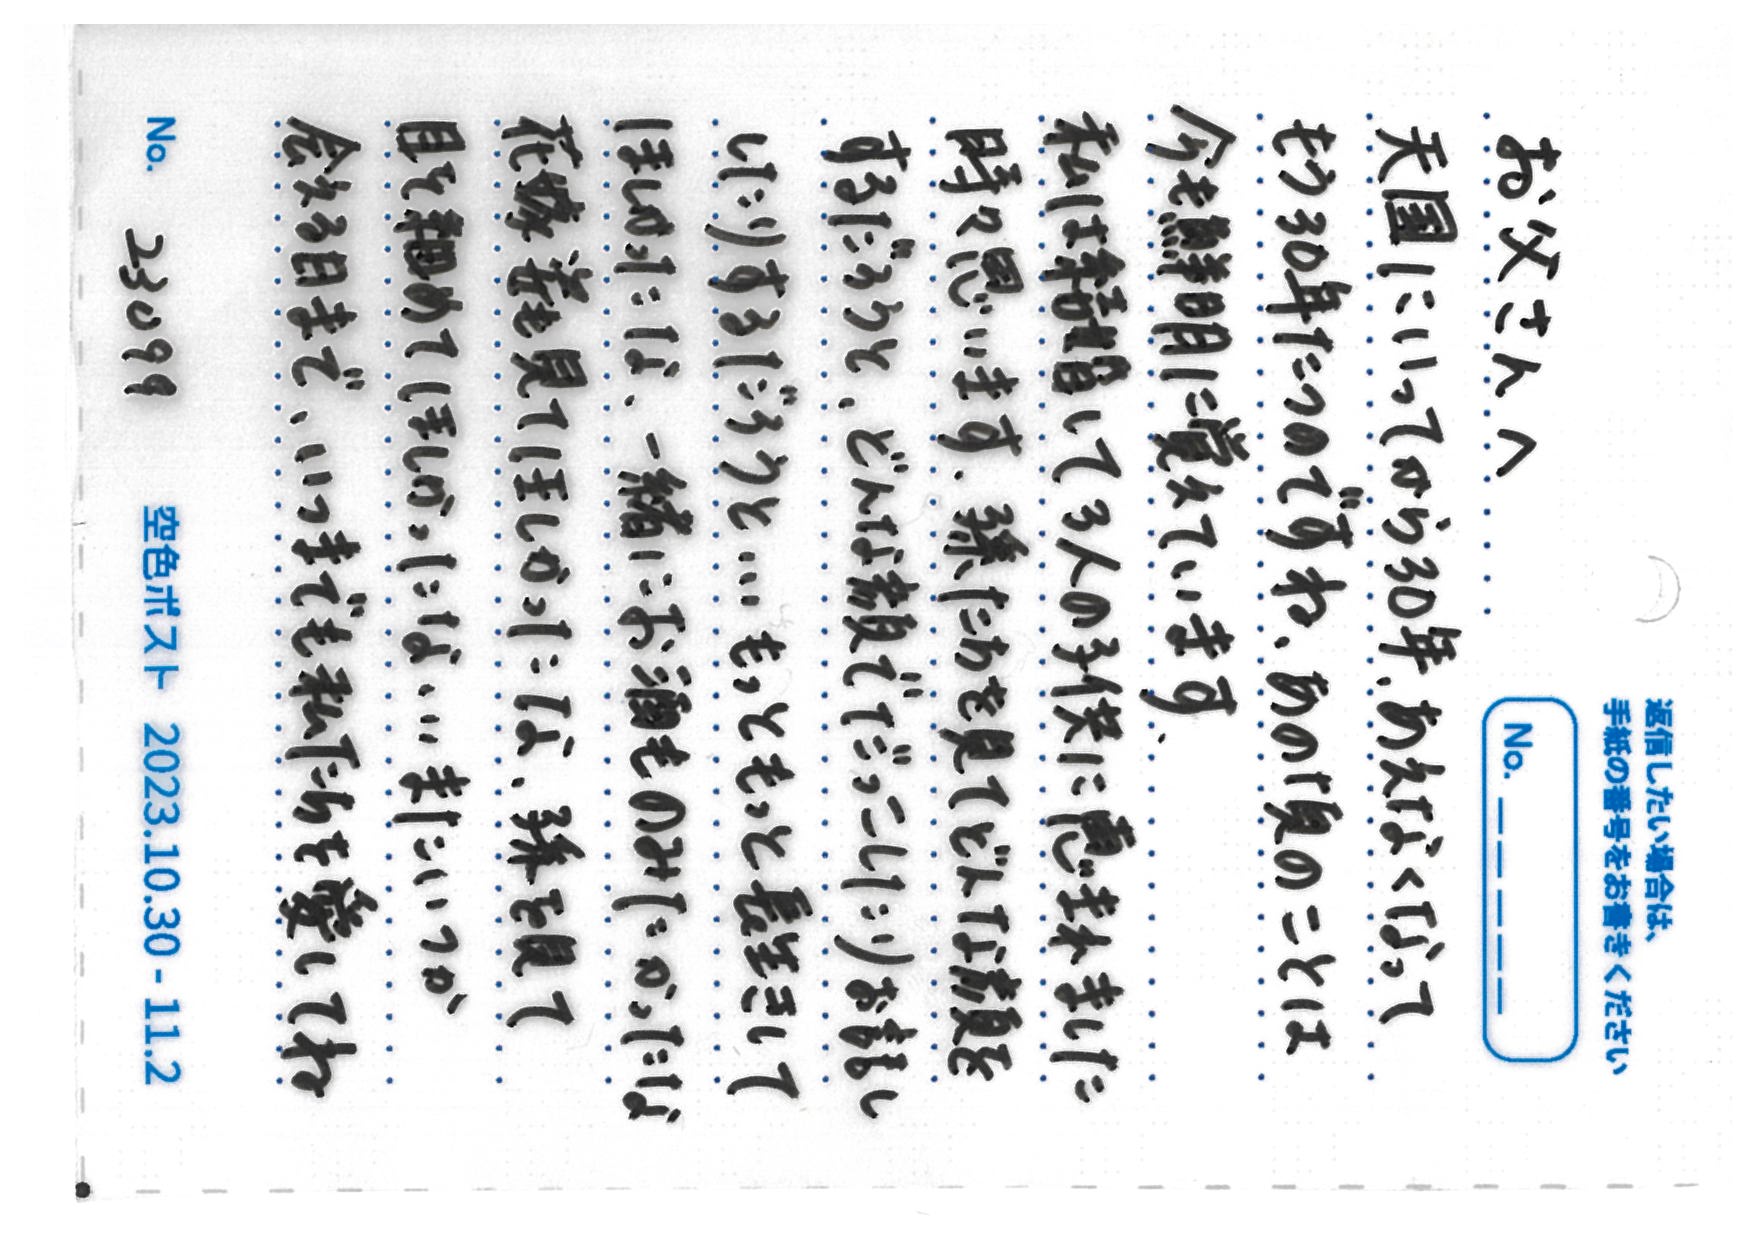 返信したい場合は、
手紙の番号をお書きください
No. _ _ _ _ _
お父さんへ
天国にいってから30年、あえなくなって
もう30年たつのですね、あの頃のことは
今も鮮明に覚えています、
私は結婚して3人の子供に恵まれました
時々思います、孫たちを見てどんな顔を
するだろうと、どんな顔でだっこしたりお話し
したりするだろうと…もっともっと長生きして
ほしかったな、一緒にお酒ものみたかったな
花嫁姿も見てほしかったな、孫を見て
目を細めてほしかったな…またいつか
会える日まで、いつまでも私たちを愛してね
No. 23099
空色ポスト 2023.10.30 - 11.2